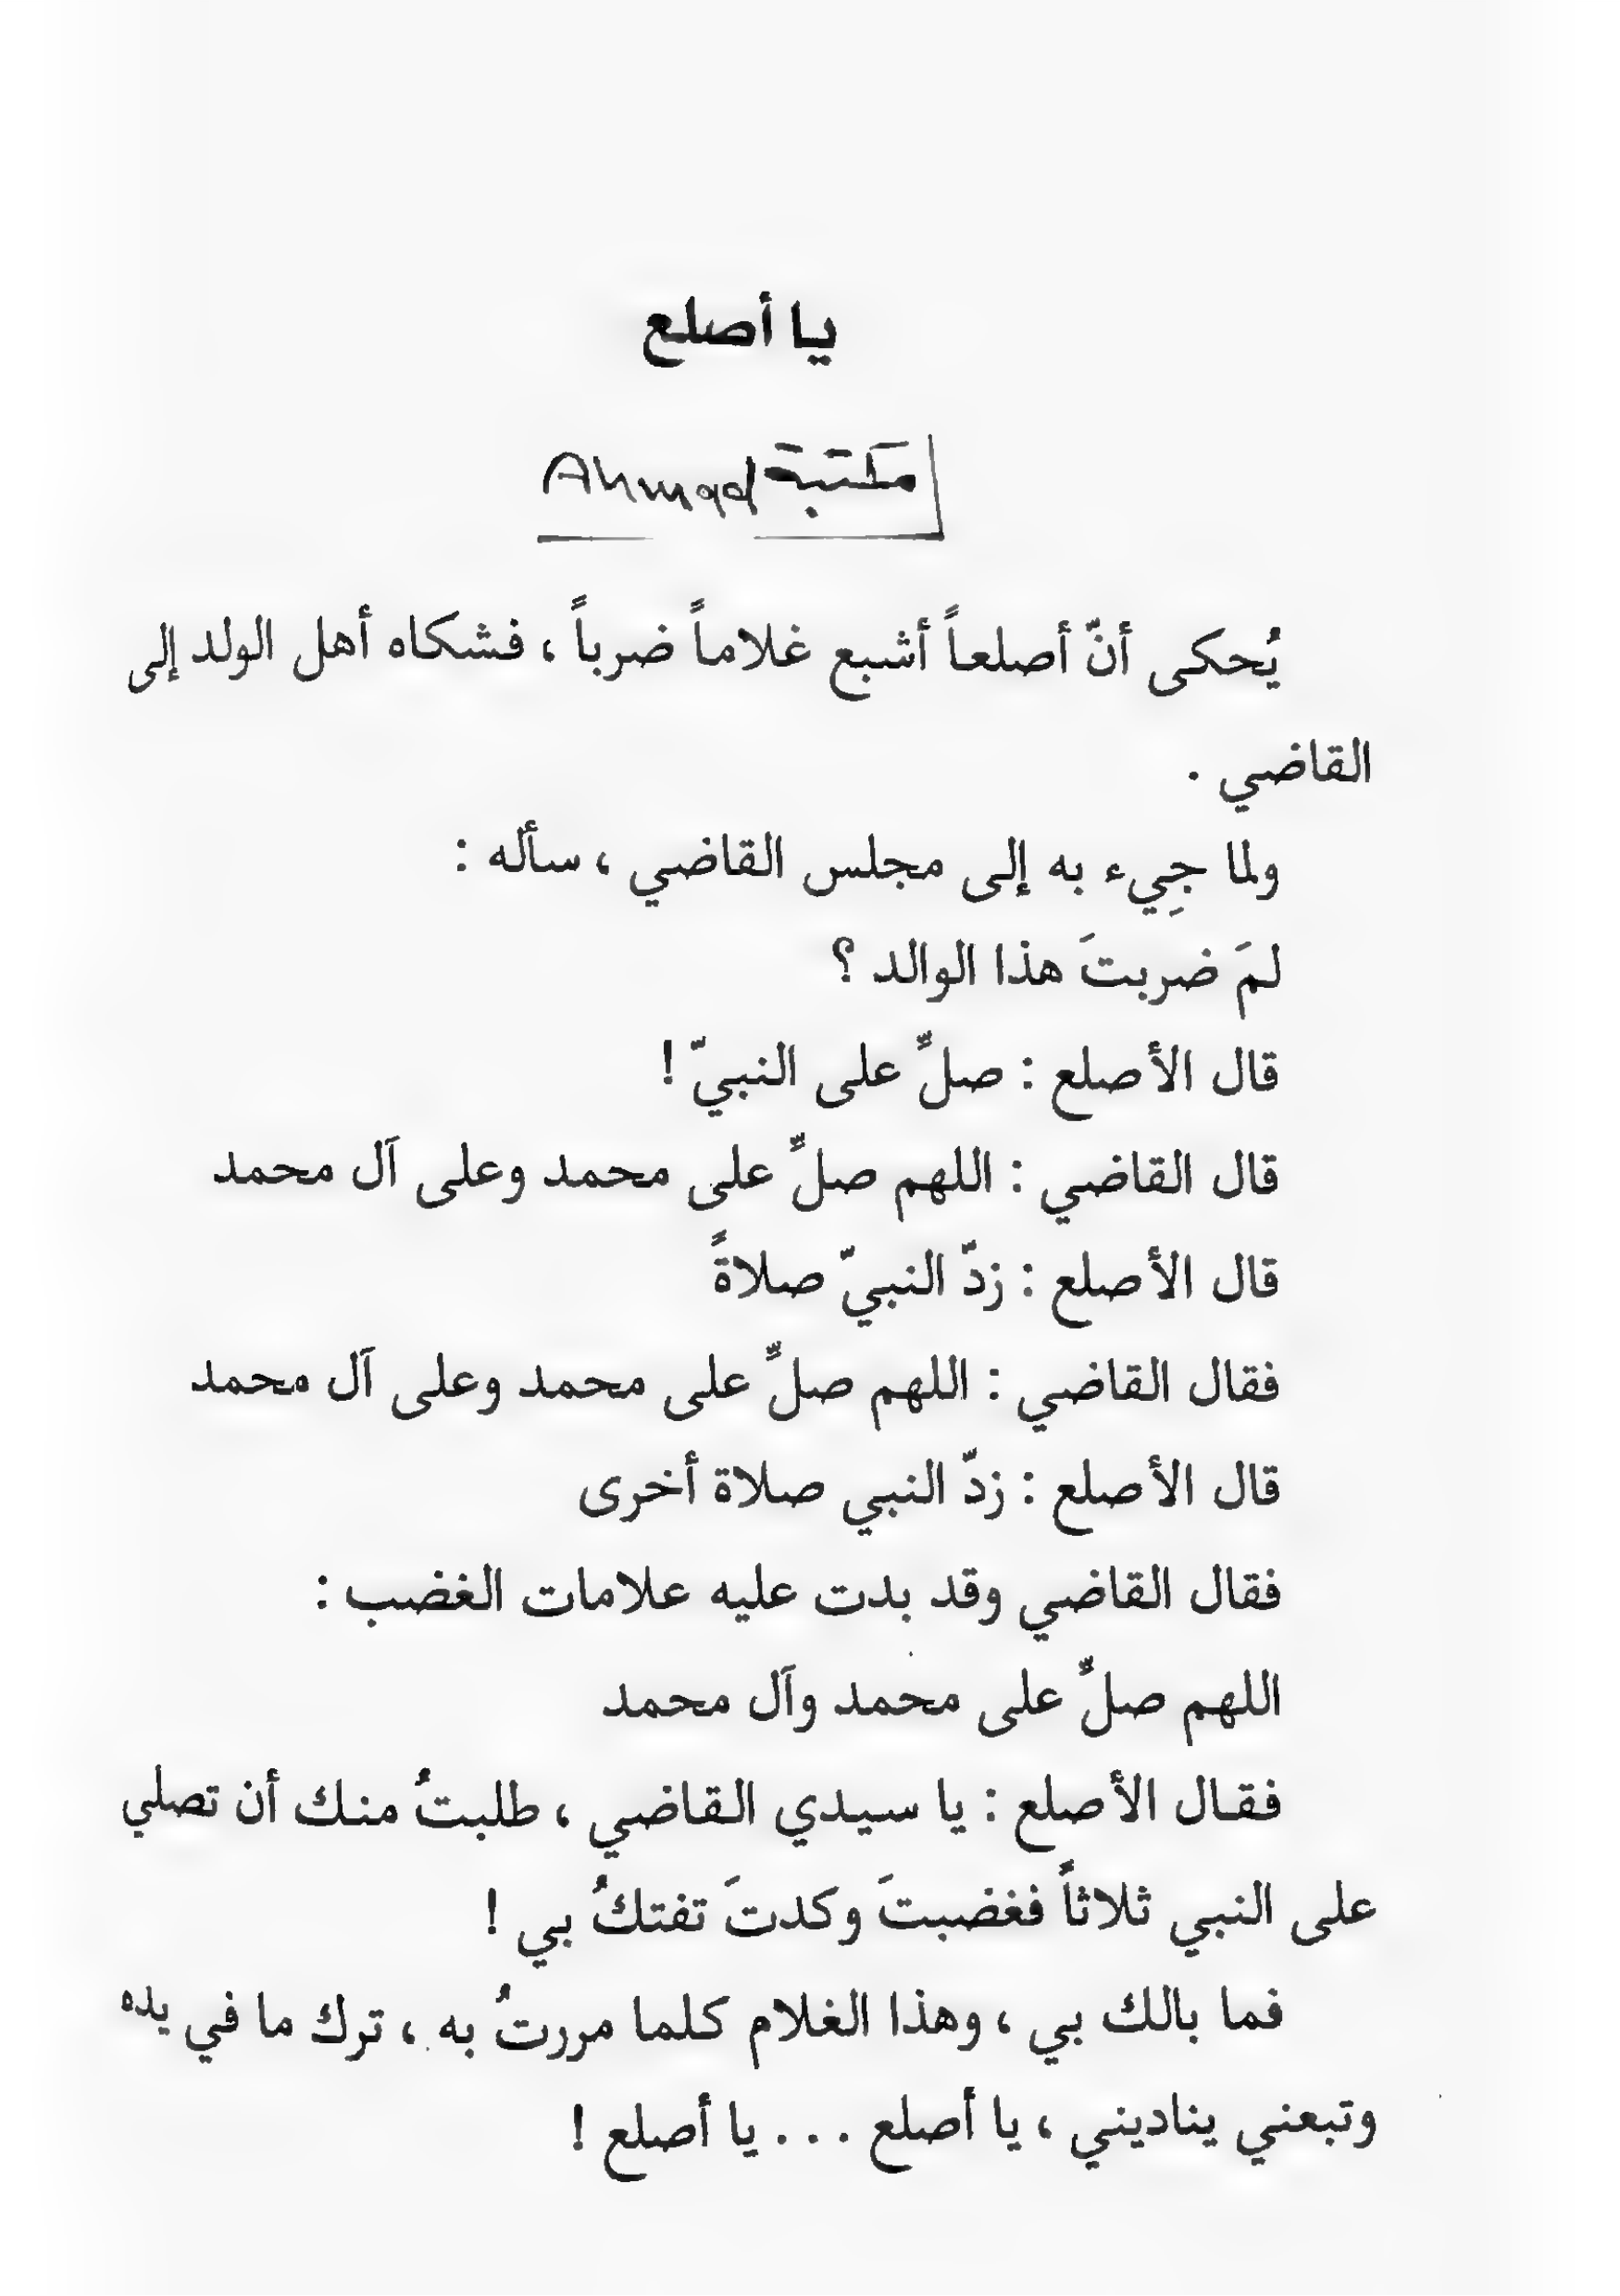 يا أصلع
مكتبة Ahmad
يُحكى أنّ أصلعاً أشبع غلاماً ضرباً ، فشكاه أهل الولد إلى
القاضي .
ولما جِيء به إلى مجلس القاضي ، سأله :
لمَ ضربتَ هذا الوالد ؟
قال الأصلع : صلِّ على النبيّ !
قال القاضي : اللهم صلِّ على محمد وعلى آل محمد
قال الأصلع : زدّ النبيّ صلاةً
فقال القاضي : اللهم صلِّ على محمد وعلى آل محمد
قال الأصلع : زدّ النبي صلاة أخرى
فقال القاضي وقد بدت عليه علامات الغضب :
اللهم صلِّ على محمد وآل محمد
فقال الأصلع : يا سيدي القاضي ، طلبتُ منك أن تصلي
على النبي ثلاثاً فغضبتَ وكدتَ تفتكُ بي !
فما بالك بي ، وهذا الغلام كلما مررتُ به ، ترك ما في يده
وتبعني يناديني ، يا أصلع . . . يا أصلع !